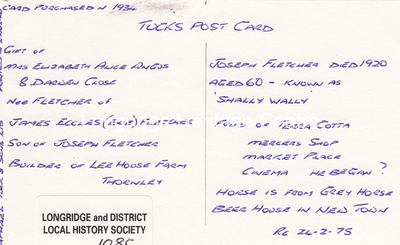 CARD PURCHASED IN 1934
TUCK'S POST CARD
GIFT OF
MRS ELIZABETH ALICE ANGUS
8 DARWEN CLOSE
NEE FLETCHER OF
JAMES ECCLES (ERIE) FLETCHER
SON OF JOSEPH FLETCHER
BUILDER OF LEE HOUSE FARM
THORNLEY
JOSEPH FLETCHER DIED 1920
AGED 60 - KNOWN AS
'SHALLY WALLY'
OF TERRA COTTA
MERCERS SHOP
MARKET PLACE
CINEMA HE BEGAN?
HORSE IS FROM GREY HORSE
BEER HOUSE IN NEW TOWN
RC 24-2-75
LONGRIDGE and DISTRICT
LOCAL HISTORY SOCIETY
1085